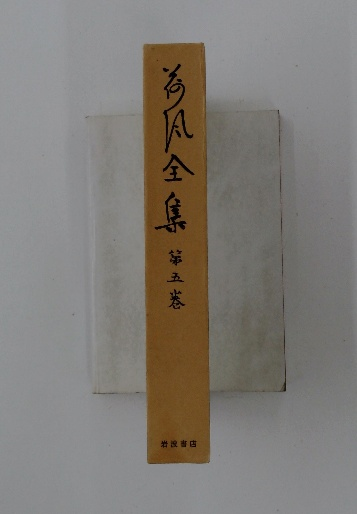 荷風全集
第五巻
岩波書店